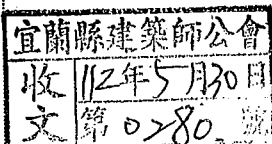 宜蘭縣建築師公會
收文
112年5月30日
第0280號